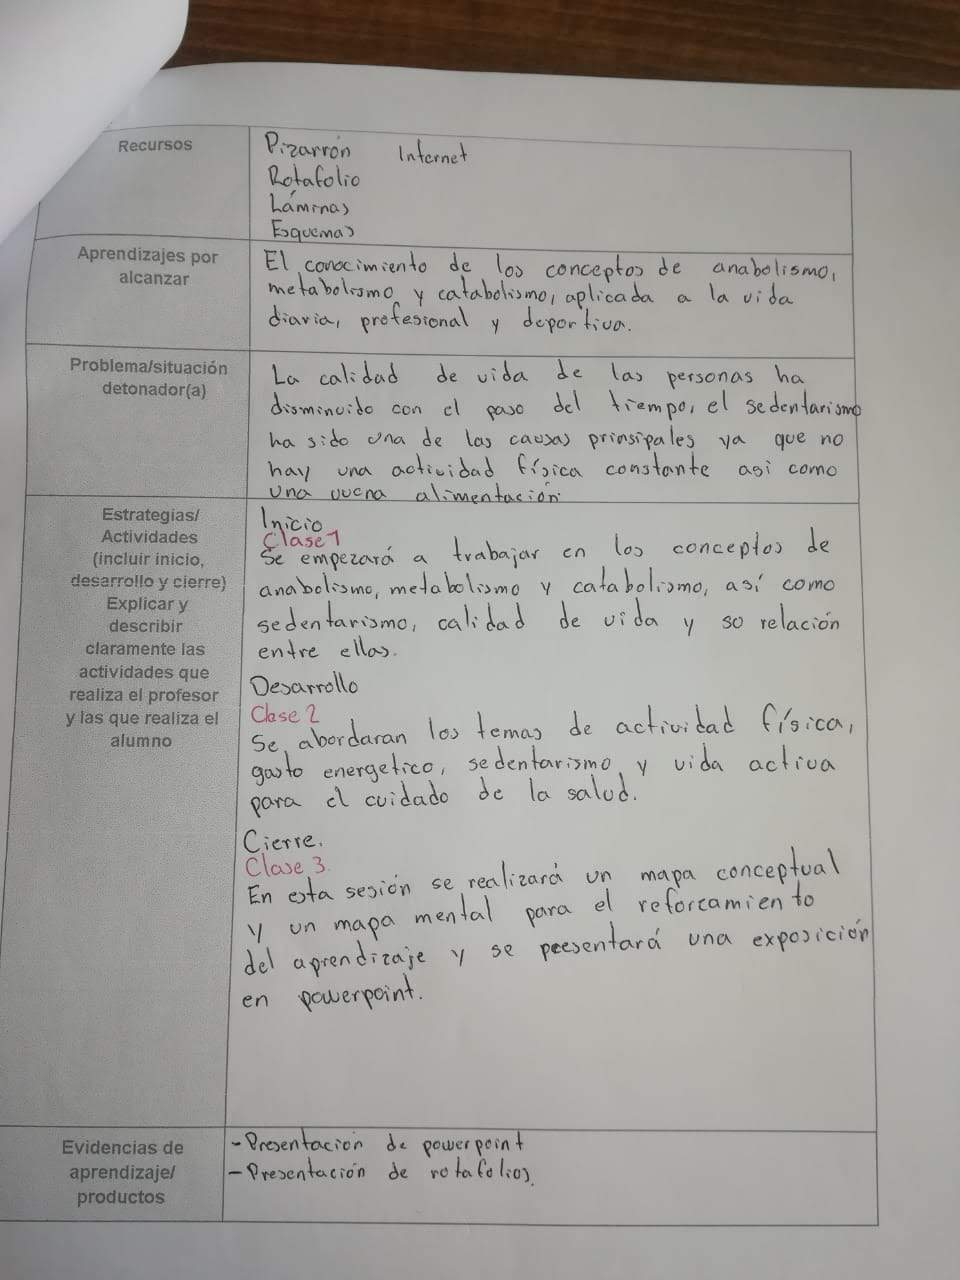 Recursos
Pizarrón Internet
Rotafolio
Láminas
Esquemas
Aprendizajes por
alcanzar
El conocimiento de los conceptos de anabolismo,
metabolismo y catabolismo, aplicada a la vida
diaria, profesional y deportiva.
Problema/situación
detonador(a)
La calidad de vida de las personas ha
disminuido con el paso del tiempo, el sedentarismo
ha sido una de las causas prinsipales ya que no
hay una actividad física constante asi como
una buena alimentación
Estrategias/
Actividades
(incluir inicio,
desarrollo y cierre)
Explicar y
describir
claramente las
actividades que
realiza el profesor
y las que realiza el
alumno
Inicio
Clase 1
Se empezará a trabajar en los conceptos de
anabolismo, metabolismo y catabolismo, así como
sedentarismo, calidad de vida y so relación
entre ellas.
Desarrollo
Clase 2
Se abordaran los temas de actividad física,
gasto energetico, sedentarismo y vida activa
para el cuidado de la salud.
Cierre.
Clase 3.
En esta sesión se realizará un mapa conceptual
y un mapa mental para el reforzamiento
del aprendizaje y se presentará una exposición
en powerpoint.
Evidencias de
aprendizaje/
productos
- Presentación de powerpoint
- Presentación de rotafolios.